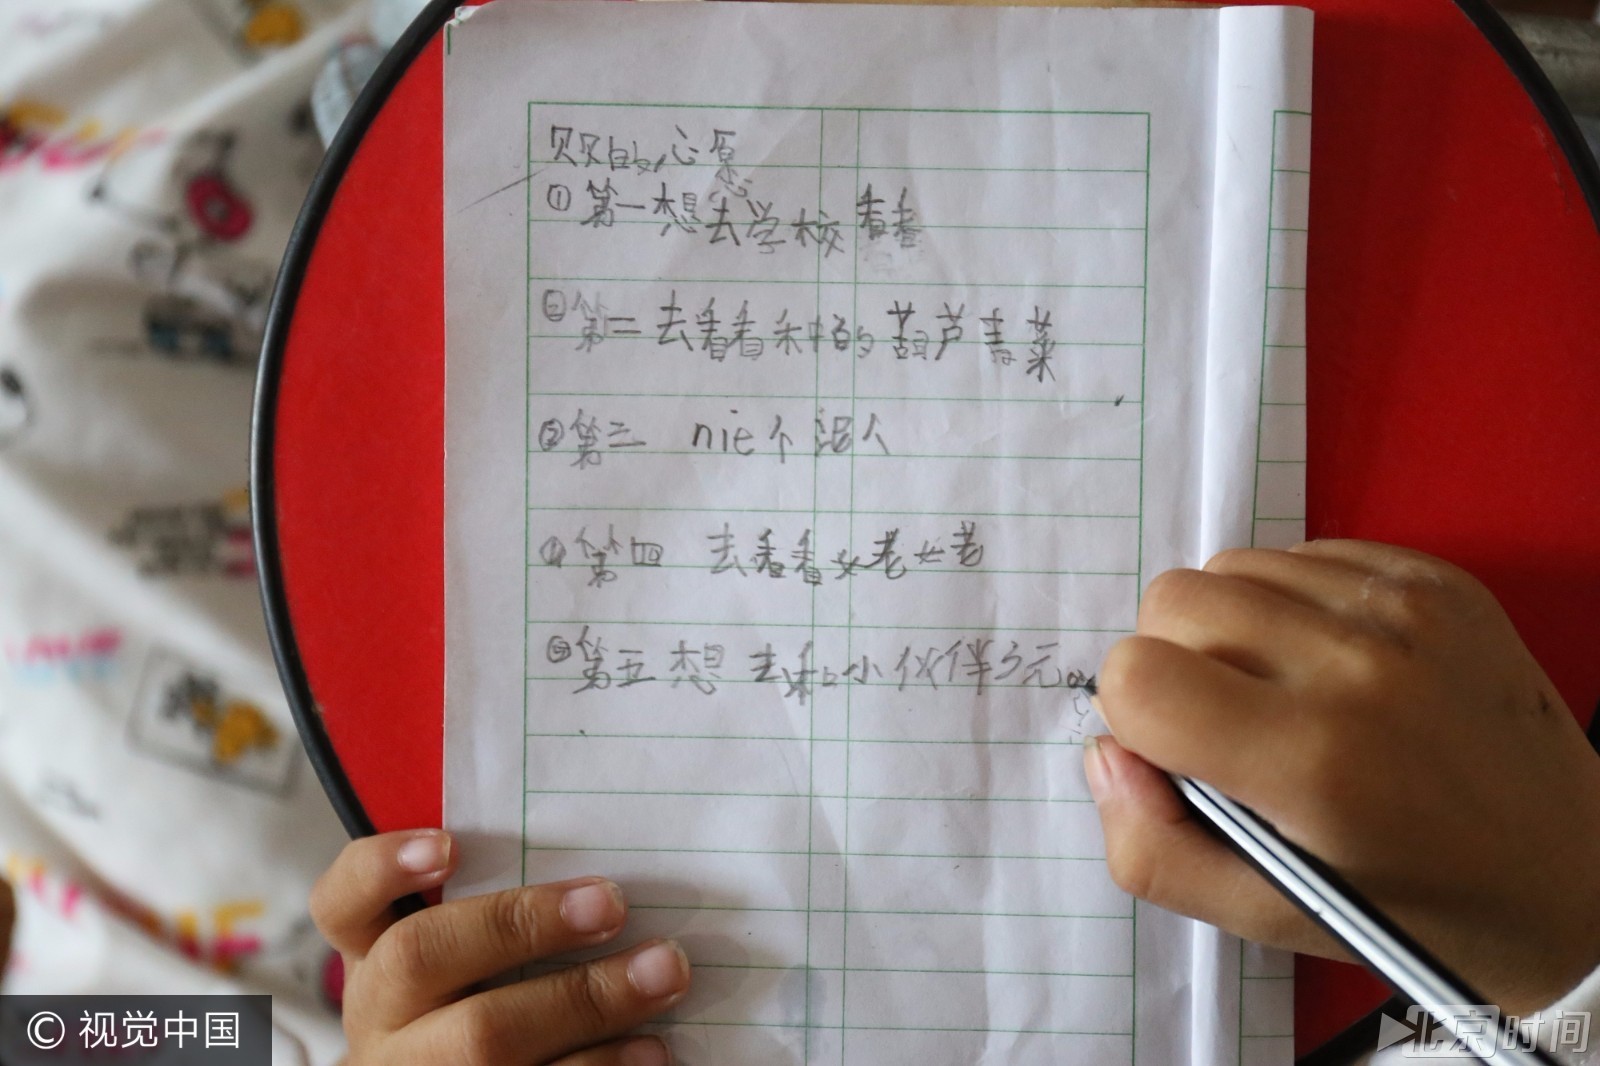 贝贝的心愿
①第一想去学校看看
②第二去看看禾中的葫芦青菜
③第三 nie个泥人
④第四 去看看女老女老
⑤第五 想去和小伙伴3元
© 视觉中国
北京时间